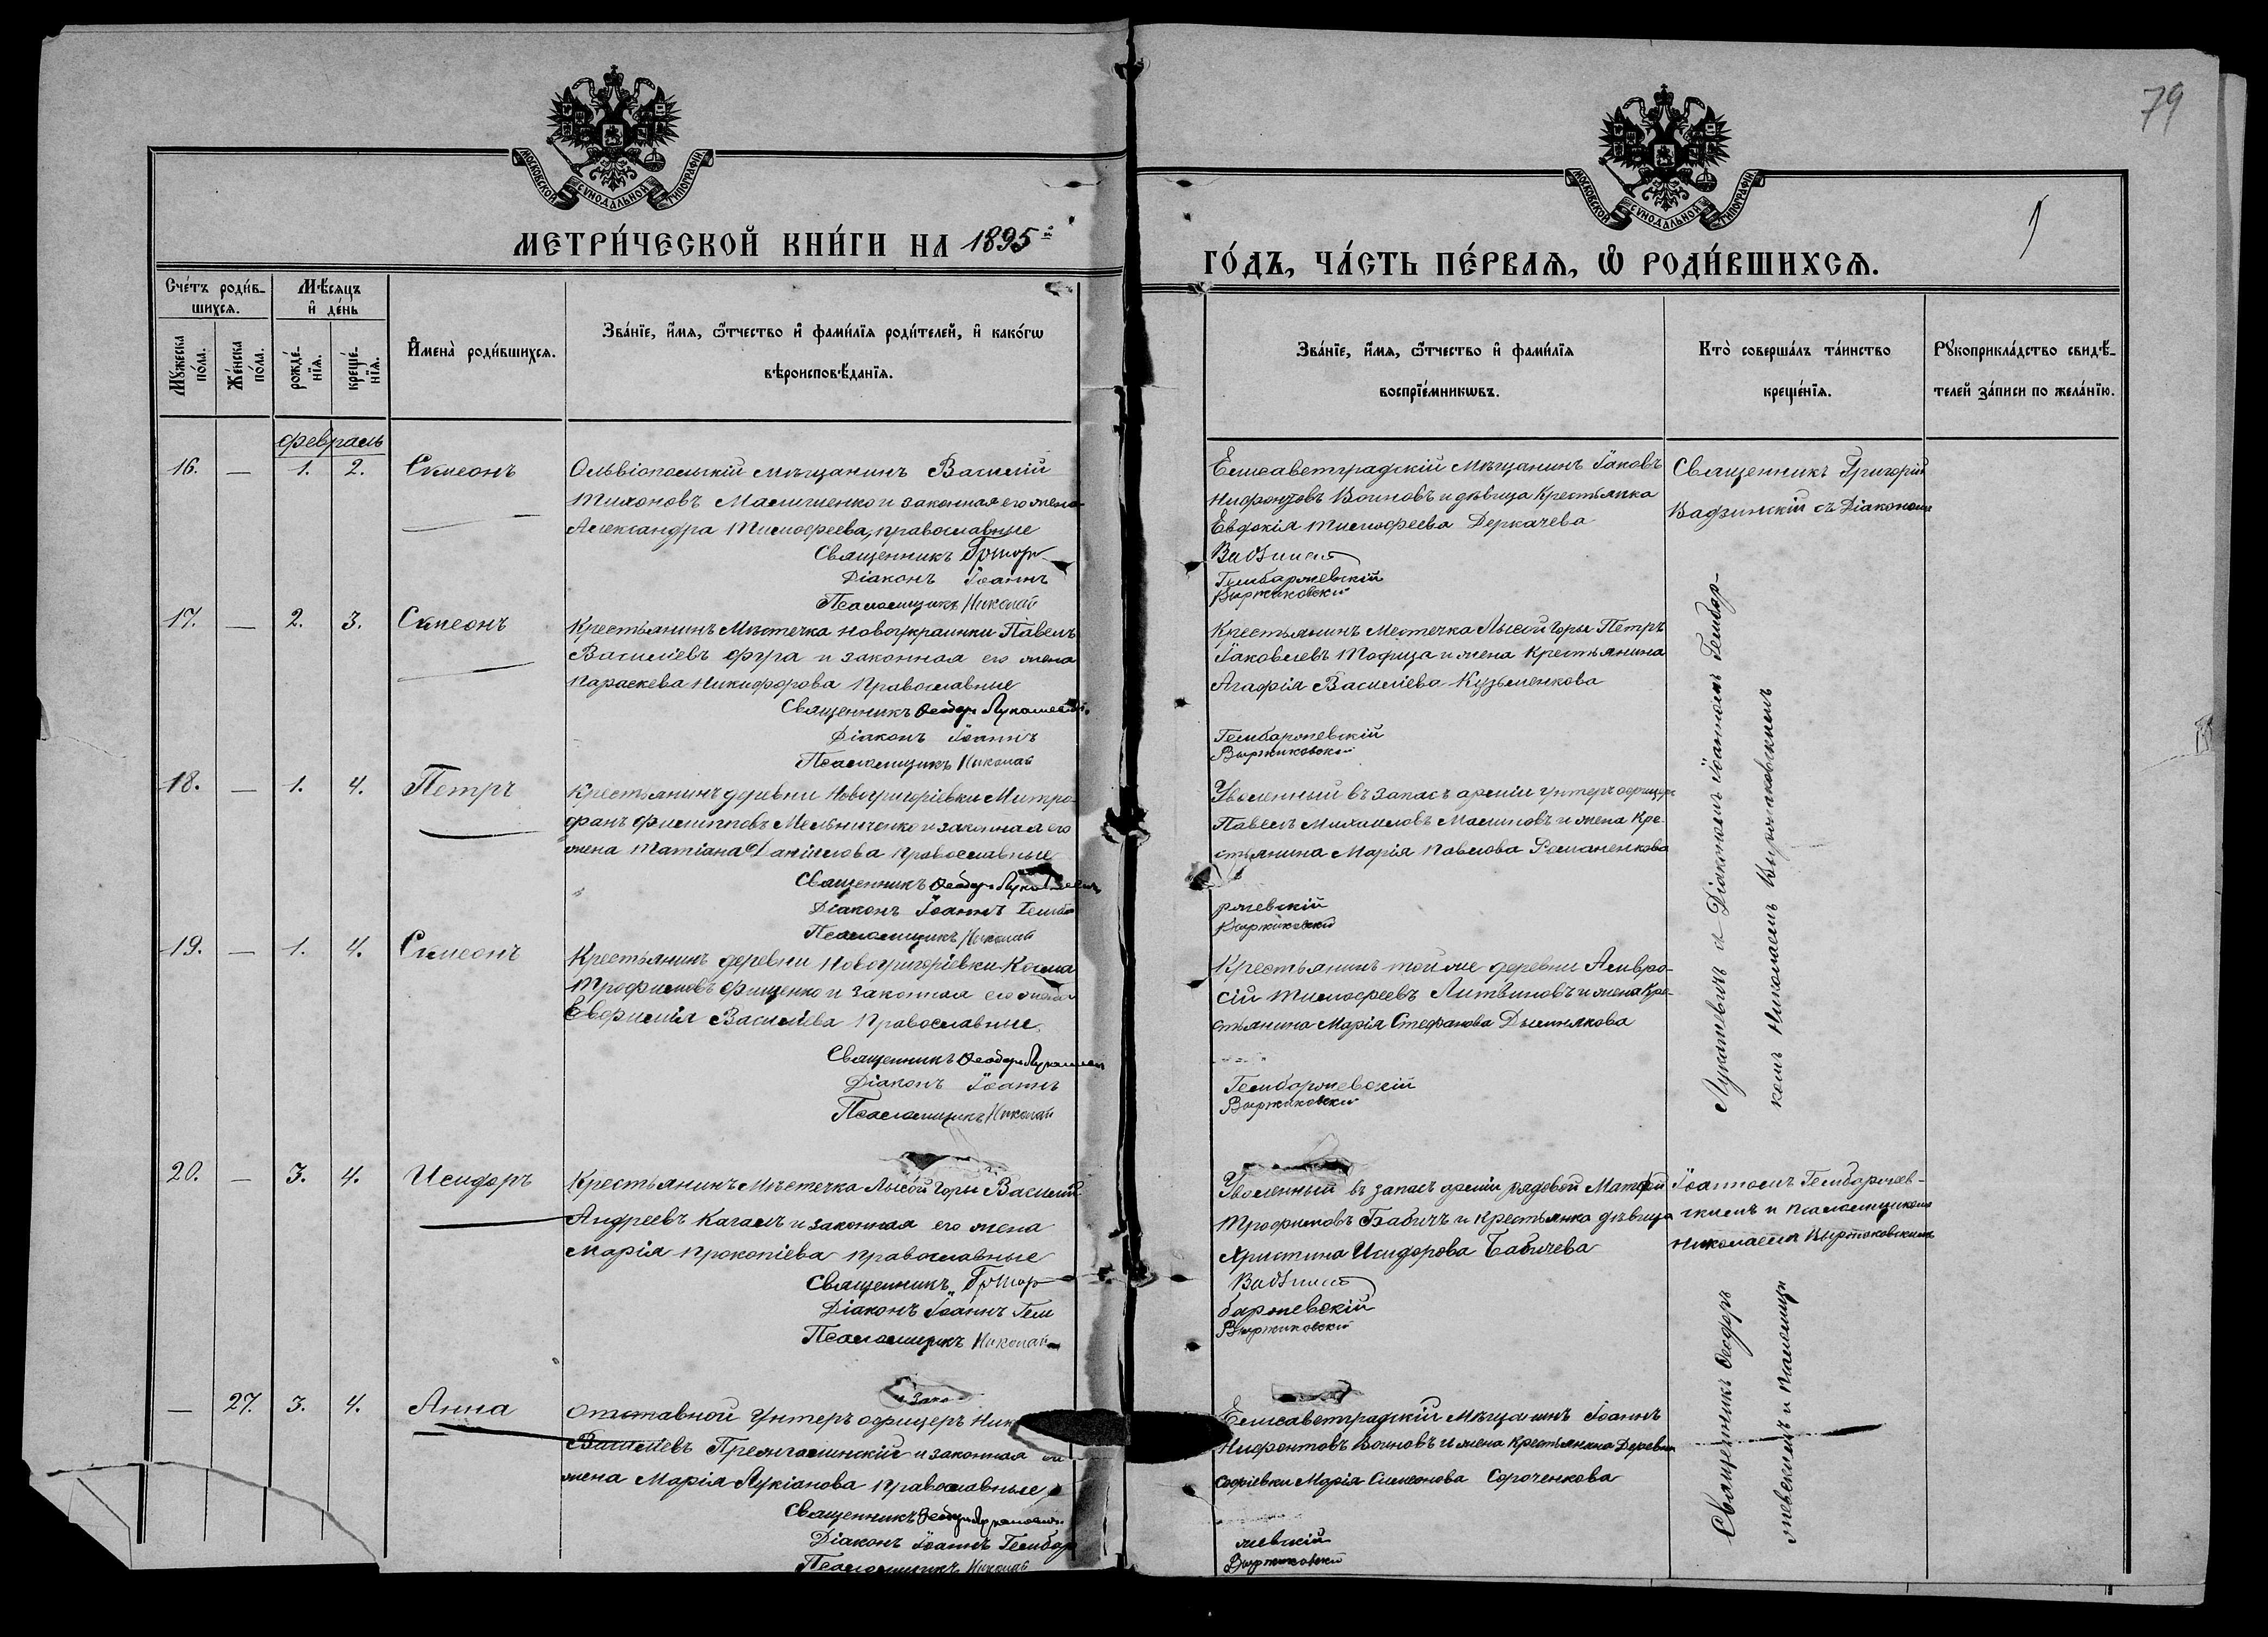 79
МОСКОВСКОЙ СѴНОДАЛЬНОЙ ТИПОГРАФІИ
МОСКОВСКОЙ СѴНОДАЛЬНОЙ ТИПОГРАФІИ
МЕТРИ́ЧЕСКОЙ КНИ́ГИ НА 1895й
ГО́ДЪ, ЧА́СТЬ ПЕ́РВАѦ, Ѡ҆ РОДИ́ВШИХСѦ.
Сче́тъ роди́в-
шихсѧ.
Мꙋ́жеска по́ла.
Же́нска по́ла.
Мѣ́сѧцъ и҆ де́нь
рожде́-
нїѧ.
креще́-
нїѧ.
И҆мена̀ роди́вшихсѧ.
Зва́нїе, и҆́мѧ, ѻ҆́тчество и҆ фами́лїѧ роди́телей, и҆ како́гѡ
вѣроисповѣ́данїѧ.
Зва́нїе, и҆́мѧ, ѻ҆́тчество и҆ фами́лїѧ
воспрїе́мникѡвъ.
Кто̀ соверша́лъ та́инство
креще́нїѧ.
Рꙋкоприкла́дство свидѣ́-
телей за́писи по жела́нїю.
февраль
16. — 1. 2. Сѵмеонъ
Ольвіопольскій мѣщанинъ Василій
Тихоновъ и законная его жена
Александра Тимофеева, православные
Священникъ Григор
Діаконъ Іоаннъ
Псаломщикъ Николай
Елисаветградскій мѣщанинъ Іаковъ
Нифонтовъ Воиновъ и дѣвица крестьянка
Евдокія Тимофеева Деркачева
Вадзинскій
Гембаржевскій
Выржиковскій
Священникъ Григорій
Вадзинскій съ Діакономъ
17. — 2. 3. Сѵмеонъ
Крестьянинъ мѣстечка Новоукраинки Павелъ
Василіевъ Фура и законная его жена
Параскева Никифорова православные
Священникъ Ѳеодоръ Лукашевичъ
Діаконъ Іоаннъ
Псаломщикъ Николай
Крестьянинъ местечка Лысой Горы Петръ
Іаковлевъ и жена крестьянина
Агафія Василіева Кузьменкова
Гембаржевскій
Выржиковскій
18. — 1. 4. Петръ
Крестьянинъ деревни Новогригоріевки Митро-
фанъ Филипповъ Мельниченко и законная его
жена Татіана Даніилова православные
Священникъ Ѳеодоръ Лукашевичъ
Діаконъ Іоаннъ Гемба
Псаломщикъ Николай
Уволенный въ запасъ арміи унтеръ офицеръ
Павелъ Михаиловъ Малиновъ и жена кре-
стьянина Марія Павлова Романенкова
ржевскій
Выржиковскій
19. — 1. 4. Сѵмеонъ
Крестьянинъ деревни Новогригоріевки Косма
Трофимовъ Фищенко и законная его жена
Евфимія Василіева православные
Священникъ Ѳеодоръ Лукашевичъ
Діаконъ Іоаннъ
Псаломщикъ Николай
Крестьянинъ той же деревни Амвро-
сій Тимофеевъ Литвиновъ и жена кре-
стьянина Марія Стефанова
Гембаржевскій
Выржиковскій
Лукашевичъ съ Діакономъ Іоанномъ Гембар-
комъ Николаемъ Выржиковскимъ
20. — 3. 4. Исидоръ
Крестьянинъ мѣстечка Лысой Горы Василій
Андреевъ Качалъ и законная его жена
Марія Прокопіева православные
Священникъ Григор
Діаконъ Іоаннъ Гем
Псаломщикъ Николай
Уволенный въ запасъ арміи рядовой Матфей
Трофимовъ Бабичъ и крестьянка дѣвица
Христина Исидорова Бабичева
Вадзинскій
баржевскій
Выржиковскій
Іоанномъ Гембаржев-
скимъ и псаломщикомъ
Николаемъ Выржиковскимъ
— 27. 3. 4. Анна
Отставной унтеръ офицеръ
Василіевъ и законная его
жена Марія Лукіанова православные
Священникъ Ѳеодоръ Лукашевичъ
Діаконъ Іоаннъ Гембар
Псаломщикъ Николай
Елисаветградскій мѣщанинъ Іоаннъ
Нифонтовъ Воиновъ и жена крестьянина деревни
Софіевки Марія Симеонова Сороченкова
жевскій
Выржиковскій
Священникъ Ѳеодоръ
жевскимъ и псаломщи